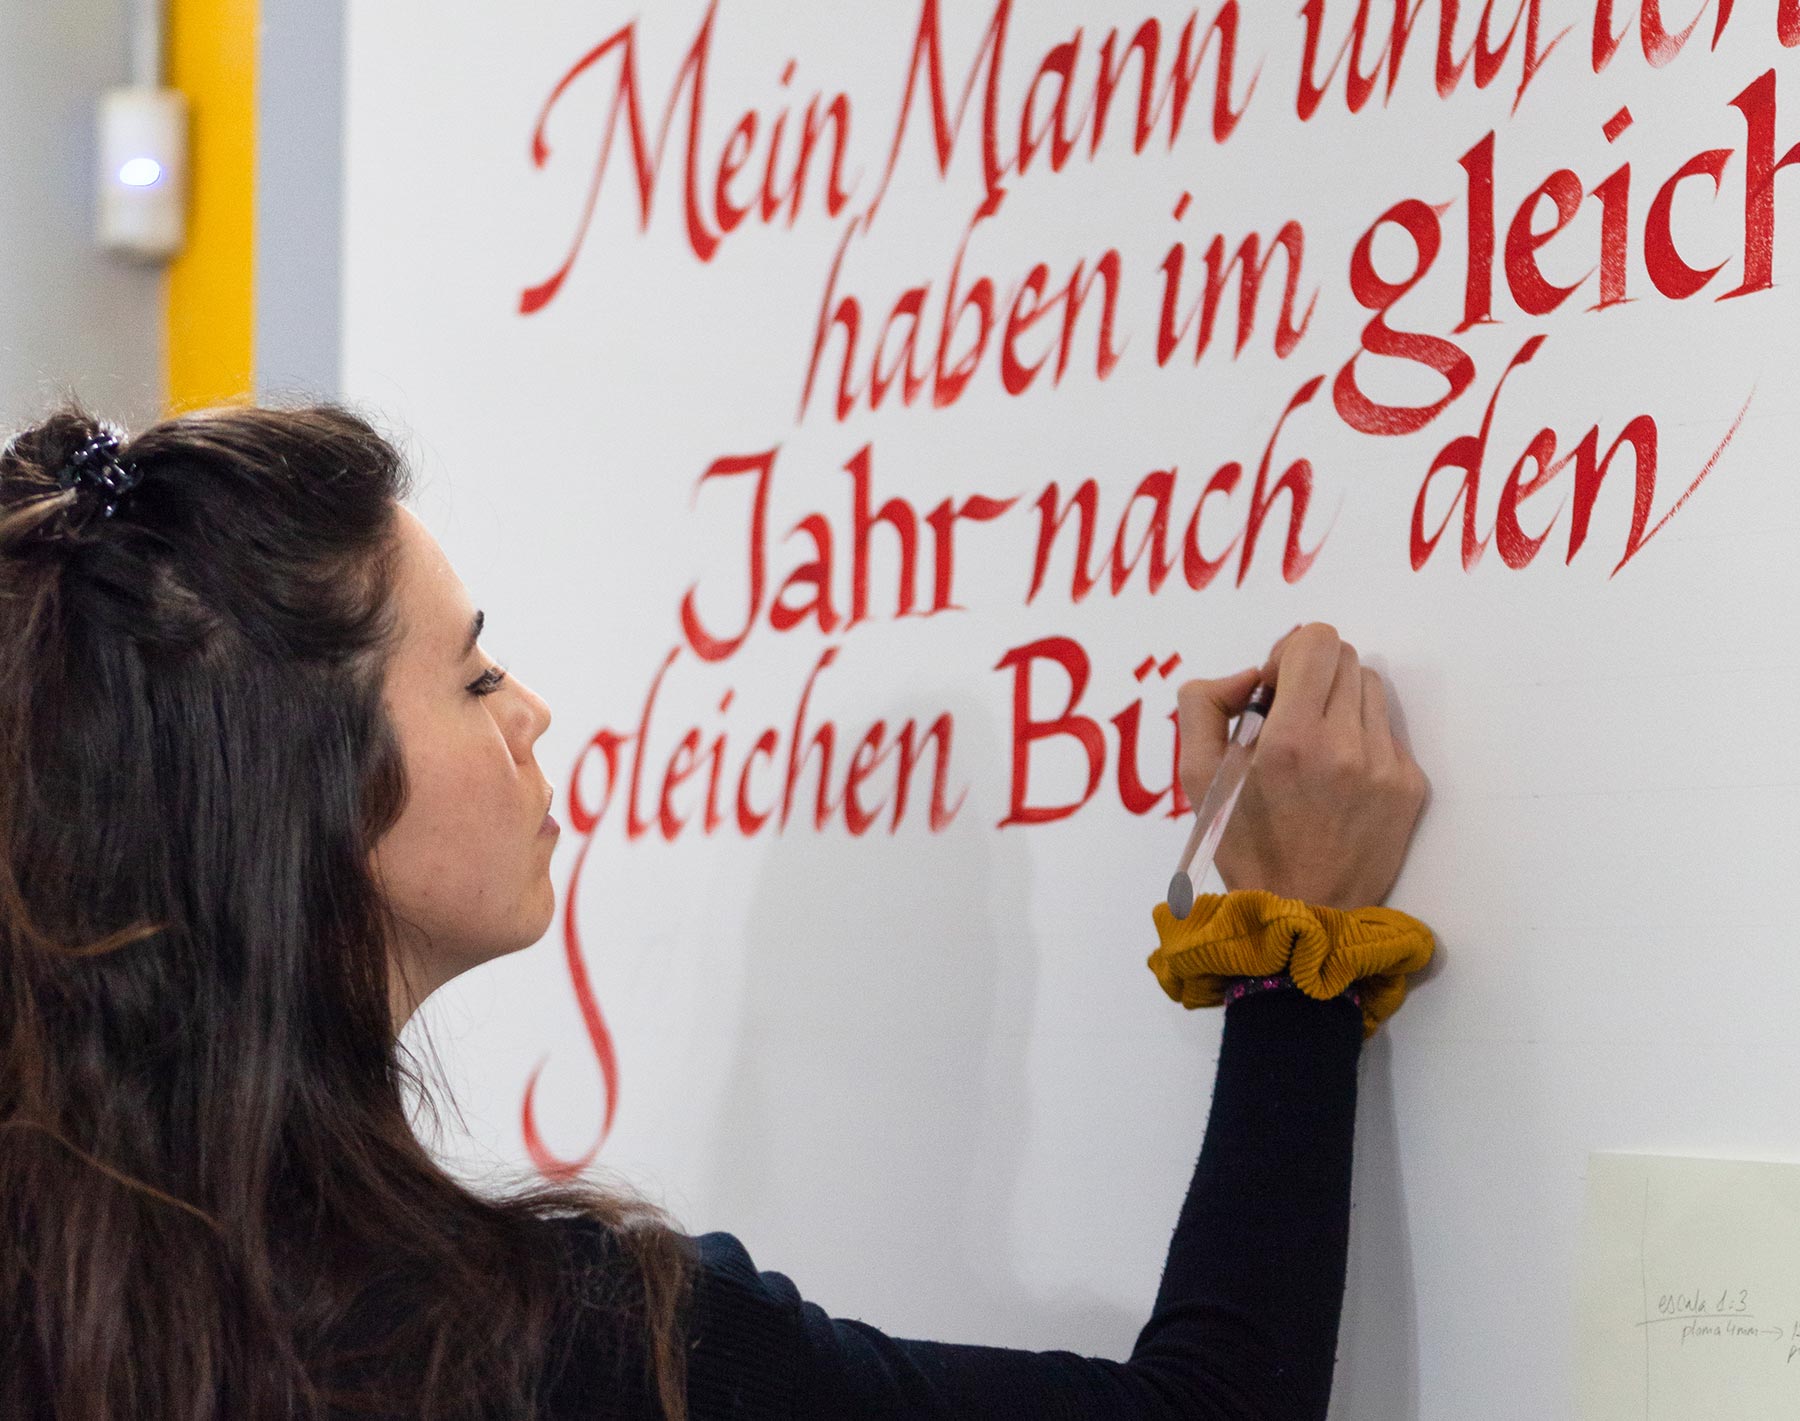 Mein Mann und ich
haben im gleich
Jahr nach den
gleichen Bü
escala 1:3
ploma 4mm →